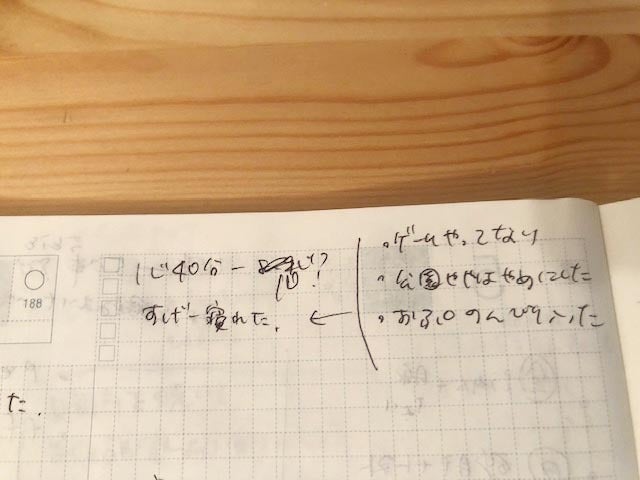 188
1じ40分ー
10じ?!
すげー寝れた。←
・ゲームやってない
・公園せずはやめにした
・おふろのんびり入った
た.